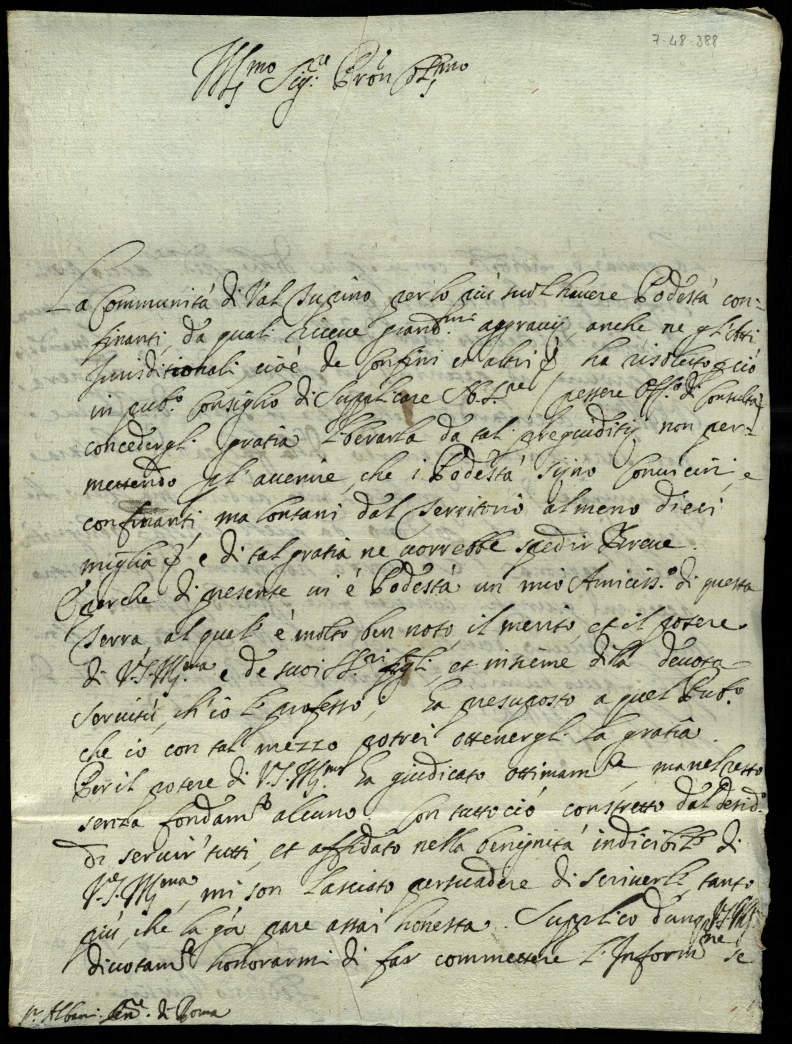 7-48-388
Ill.mo Sig.re Pron Col.mo
La Communità di Val Supino per lo più suol havere Podestà con=
finanti, da quali riceve grand.mi aggravij anche ne gl'Atti
Jurisditionali cioè de confini et altri, ha risoluto perciò
in pub.o Consiglio di Supplicare N. S.re (p essere Off.o di Consulta)
concedergli gratia liberarla da tali pregiuditij, non per=
mettendo per l'avenire, che i Podestà sijno Convicini, e
confinanti, ma lontani dal Territorio almeno dieci
miglia e di tal gratia ne vorrebbe spedir Breve.
E perche di presente vi è Podestà un mio Amiciss.o di questa
Terra al quale è molto ben noto, il merito, et il potere
di V.S. Ill.ma e de suoi SS.ri figli, et insieme della devota
servitù, ch'io le professo, ha presuposto a quel Pub.o
che io con tal mezzo potrei ottenergli la gratia.
Per il potere di V.S. Ill.ma ha giudicato ottimam.te, ma nel resto
senza fondam.to alcuno. Con tutto ciò constretto dal desid.o
di servir' tutti, et affidato nella benignità indicibile di
V.S. Ill.ma, mi son lasciato persuadere di scriverle tanto
più, che la gra pare assai honesta. Supplico dunq V.S. Ill.
divotam.te honorarmi di far commettere l'Inform.ne se
S.r Albani Sen.re di Roma